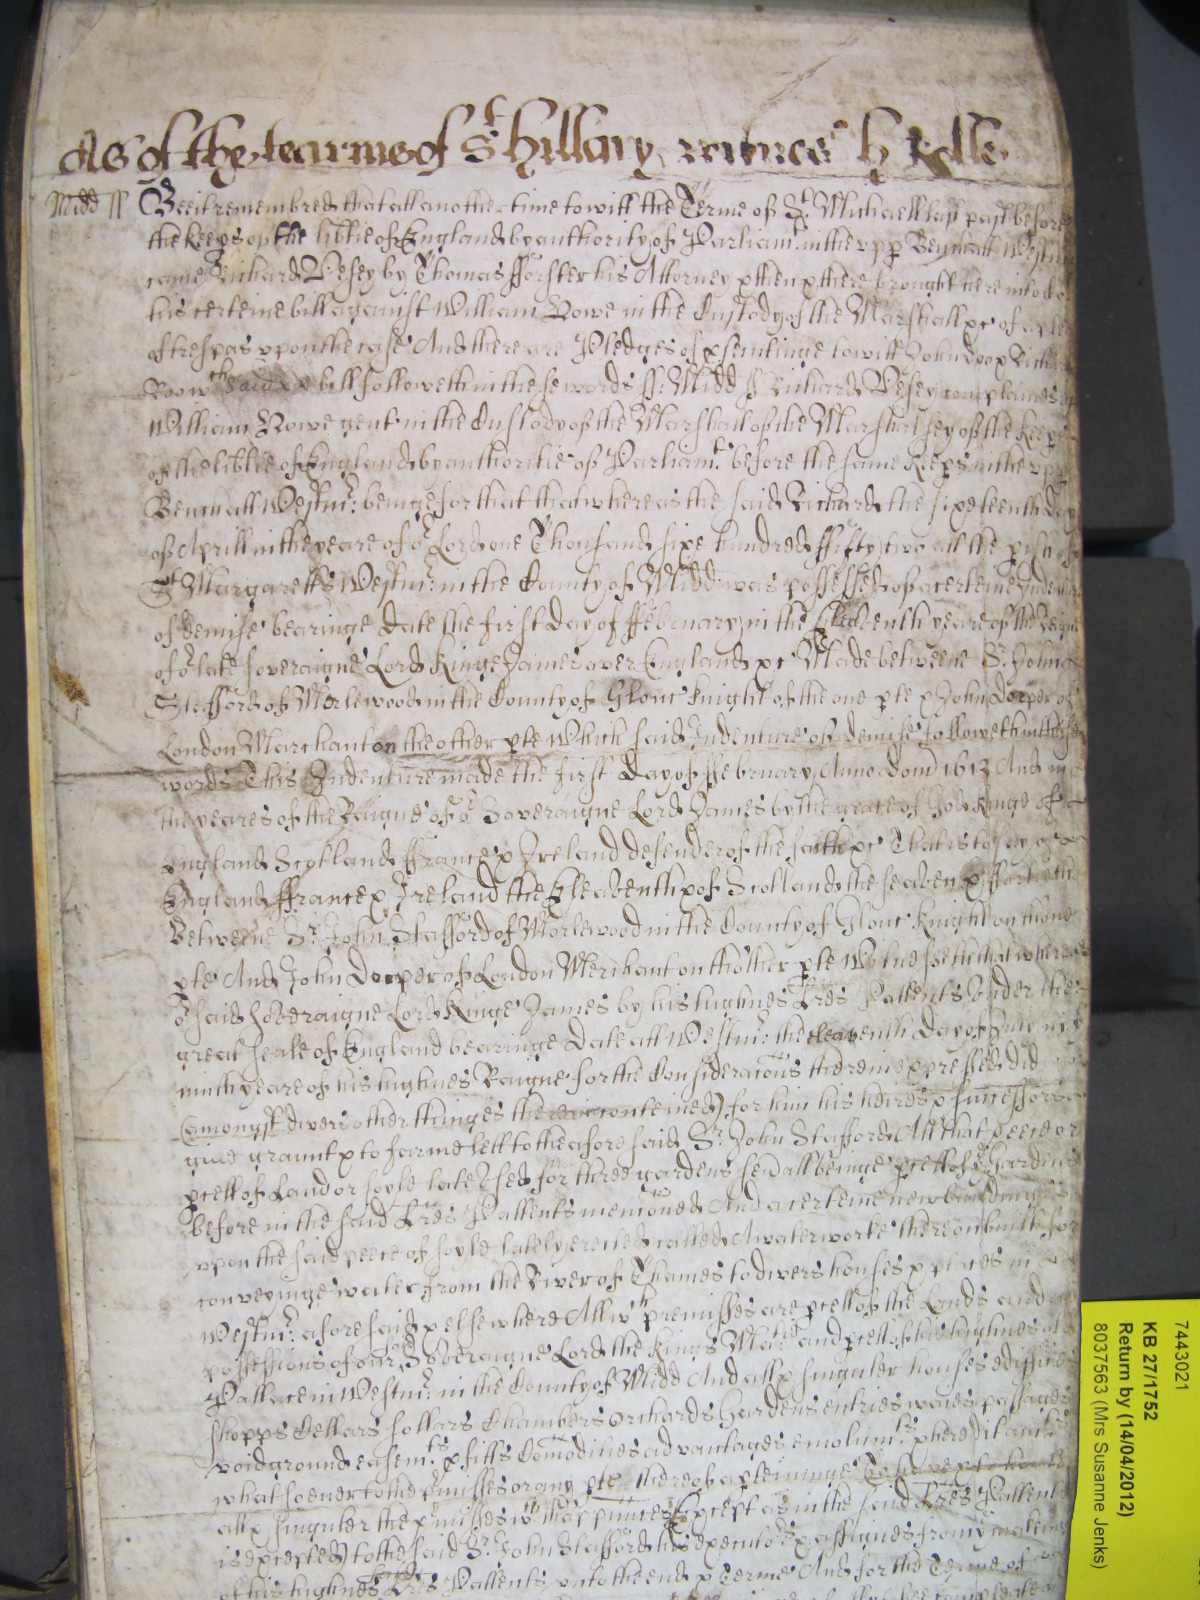 As of the tearme of St hillary
Midd ss Bee it remembred that att another time to witt the Terme of St. Michaell last past before
the keeps of the libtie of England by authority of Parliamt. in the upp Bench att Westm
came Richard Vesey by Thomas fforster his Attorney & then & there brought here into
his certeine bill against William Rowe in the Custody of the Marshall &c of a plea
of trespas upon the case And there are Pledges of psecutinge to witt John doo & Rich
Roo wch said bill followeth in these words ss: Midd ss Richard Vesey complaines of
William Rowe gent in the Custody of the Marshall of the Marshalsey of the keeps
of the libtie of England by authoritie of Parliamt. before the same keeps in the upp
Bench att Westmr: beinge for that that whereas the said Richard the sixteenth day
of Aprill in the yeare of or Lord one Thousand sixe hundred ffifty two att the pish of
St Margaretts Westmr: in the County of Midd was possessed of a certeine Indenture
of demise bearinge date the first day of ffebruary in the eleaventh yeare of the Reigne
of or late soveraigne Lord Kinge James over England &c Made betweene Sr. John
Stafford of Morlewood in the County of Glouc knight of the one pte & John Dorper of
London Marchant on the other pte Which said Indenture of demise followeth in these
words This Indenture made the first day of ffebruary Anno dom 1613 And in
the yeares of the Raigne of or Soveraigne Lord James by the grace of God Kinge of
England Scotland ffrance & Ireland defender of the faith &c That is to say of
England ffrance & Ireland the Eleaventh & of Scotland the seaven & ffortieth
Betweene Sr. John Stafford of Morlewood in the County of Glouc Knight on thone
pte And John Dorper of London Merchant on thother pte Witnesseth that whereas
or said Soveraigne Lord Kinge James by his highnes Lres Pattents under the
great seale of England bearinge date att Westmr: the eleaventh day of
ninth yeare of his highnes Raigne for the Consideracions therein expressed did
(amongst divers other thinges therein conteined) for him his heires & successors
give graunt & to farme lett to the aforesaid Sr. John Stafford All that peece or
pcell of Land or soyle late used for three gardens sed all beinge pcell of ye Gardens
before in the said Lres Pattents mencioned And a certeine new buildinge
upon the said peece of soyle lately erected called A waterworke thereon built for
conveyinge water from the River of Thames to divers houses & places in
Westmr: aforesaid & elsewhere All wch premisses are pcell of the Lands and
possessions of our said Soveraigne Lord the Kings Matie and pcell of his highnes
Pallace in Westmr: in the County of Midd And all & singuler houses ediffices
shopps Cellars sollars Chambers orchards Gardens entries waies passages
void ground easemts. & pfitts Comodities advantages emolumts & hereditamts
whatsoever to the pmisses or any pte thereof apteininge To have & to hold
all & singuler the pmisses wth thapptinces Except as in the said Lres Pattent
is excepted to the said Sr. John Stafford his executors & assignes from
of his highnes said Lres Pattents unto the end & Terme And for the Terme of
7443021
KB 27/1752
Return by (14/04/2012)
8037563 (Mrs Susanne Jenks)